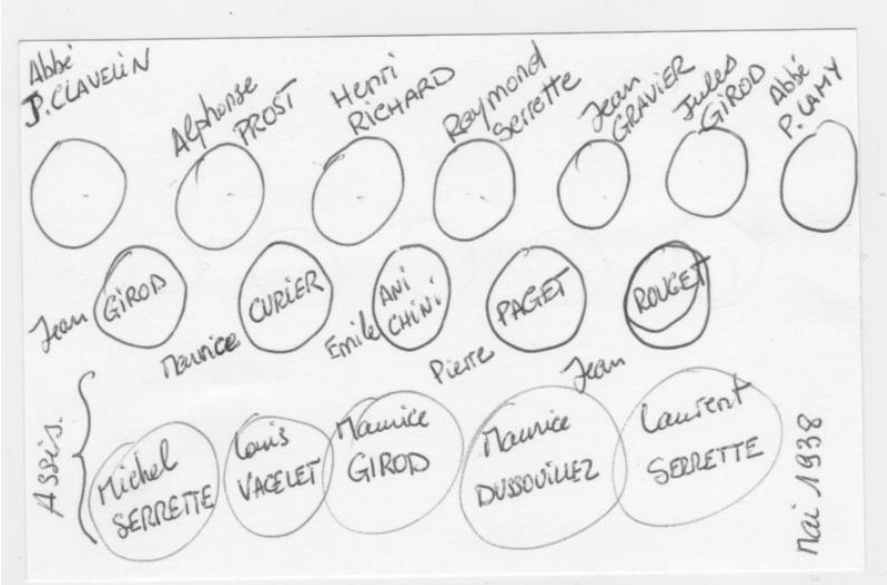 Abbé
P. CLAVELIN
Alphonse
PROST
Henri
RICHARD
Raymond
Serrette
Jean
GRAVIER
Jules
GIROD
Abbé
P. LAMY
Jean GIROD
Maurice CURIER
Emile ANI
CHINI
Pierre PAGET
Jean ROUGET
Assis.
Michel
SERRETTE
Louis
VACELET
Maurice
GIROD
Maurice
DUSSOUILLEZ
Laurent
SERRETTE
Mai 1938